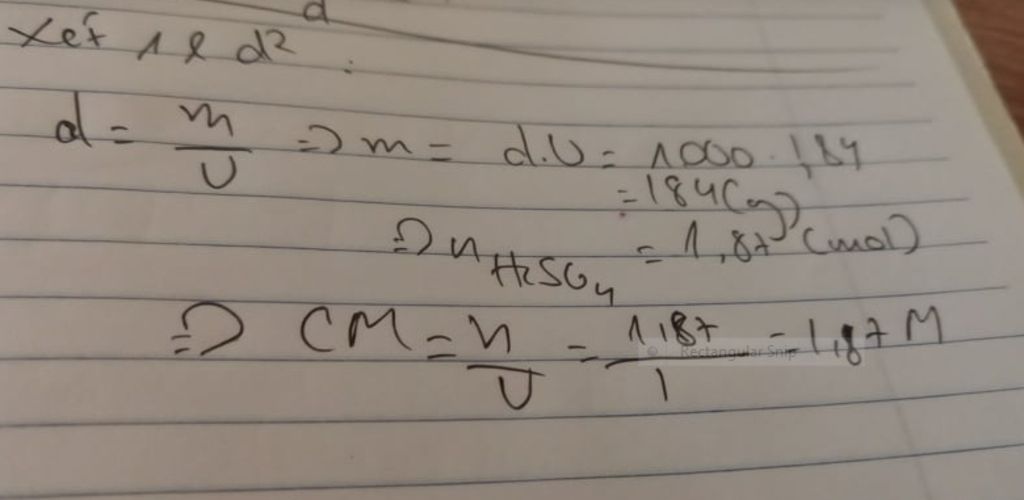 d
Xét 1 l d² :
d = m/V => m = d.V = 1000 . 1,84
= 184 (g)
=> n H2SO4 = 1,87 (mol)
=> CM = n/V = 1,87/1 = 1,87 M
Rectangular Snip